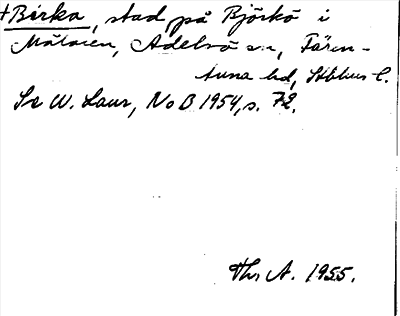 +Birka, stad på Björkö i
Mälaren, Adelsö sn, Fären-
tuna hd, Sthlms l.
Se W. Laur, NoB 1954, s. 72.
Ths A. 1955.